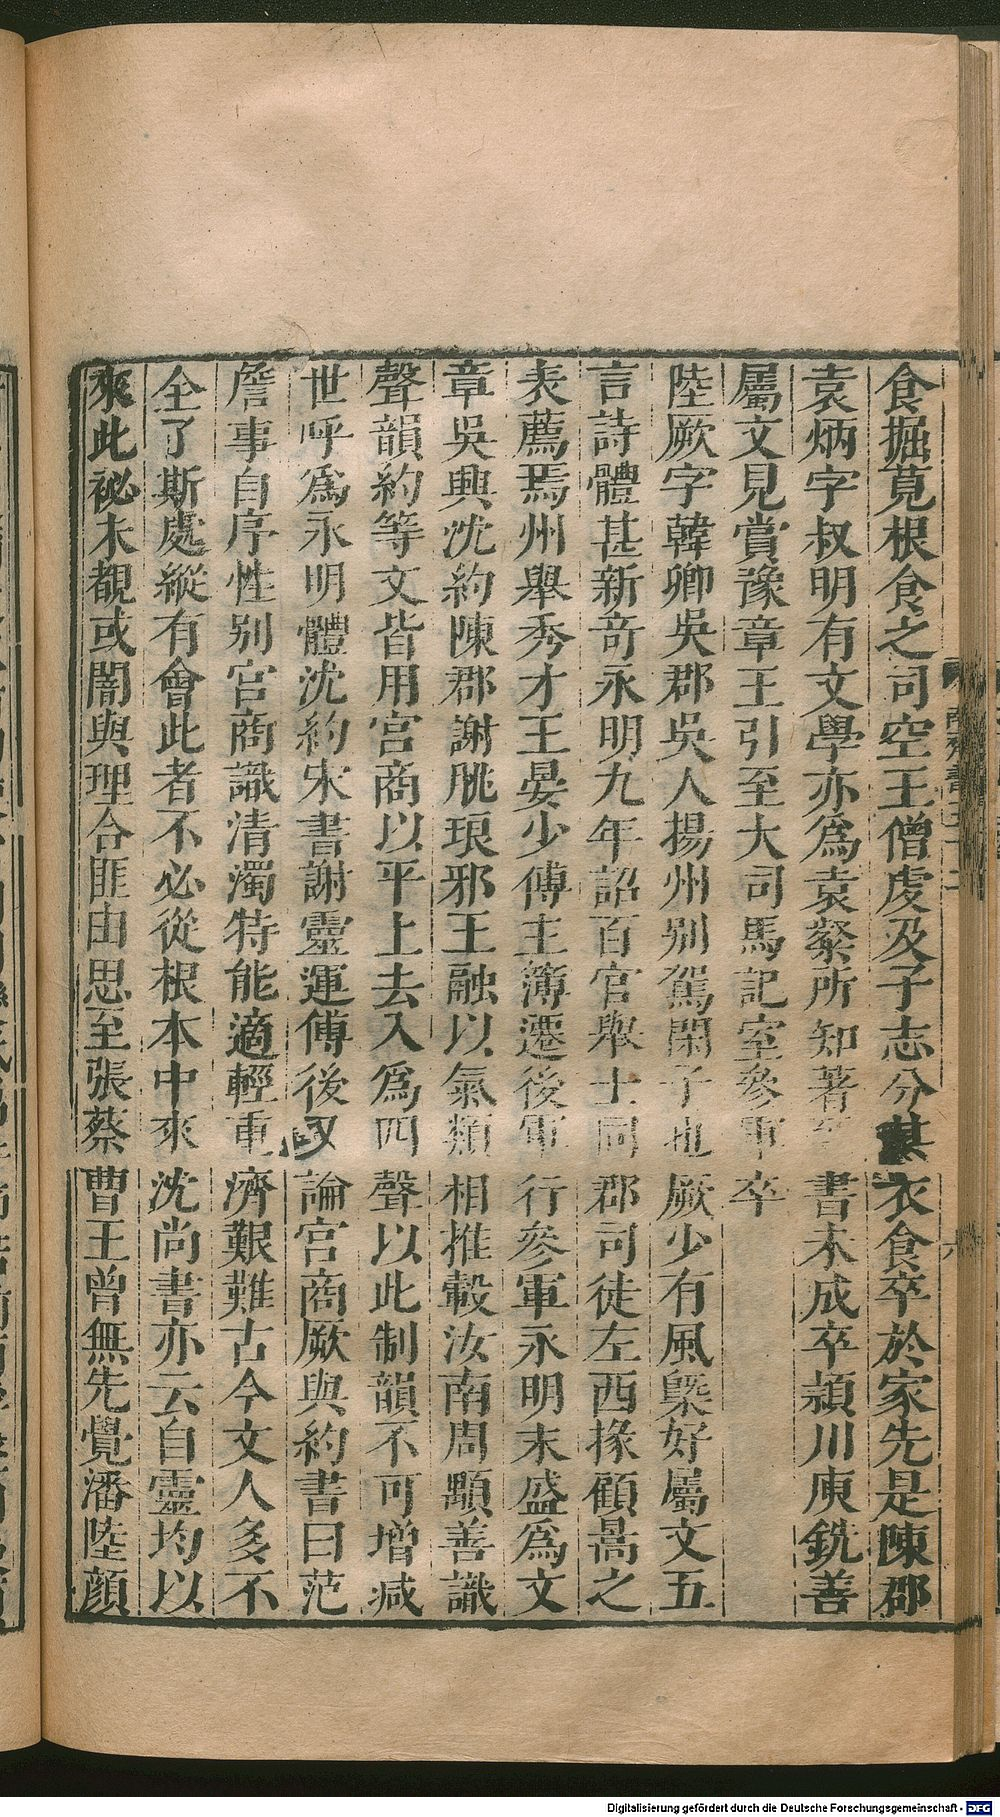 食掘莧根食之司空王僧虔及子志分其衣食卒於家先是陳郡
袁炳字叔明有文學亦爲袁粲所知著書未成卒潁川庾銑善
屬文見賞豫章王引至大司馬記室參軍卒
陸厥字韓卿吳郡吳人揚州别駕閑子也厥少有風槩好屬文五
言詩體甚新奇永明九年詔百官舉士同郡司徒左西掾顧暠之
表薦焉州舉秀才王晏少傅主簿遷後軍行參軍永明末盛爲文
章吳興沈約陳郡謝脁琅邪王融以氣類相推轂汝南周顒善識
聲韻約等文皆用宮商以平上去入爲四聲以此制韻不可增减
世呼爲永明體沈約宋書謝靈運傳後又論宮商厥與約書曰范
詹事自序性别宮商識清濁特能適輕重濟艱難古今文人多不
全了斯處縱有會此者不必從根本中來沈尚書亦云自靈均以
來此祕未覩或闇與理合匪由思至張蔡曹王曾無先覺潘陸顔
Digitalisierung gefördert durch die Deutsche Forschungsgemeinschaft - DFG